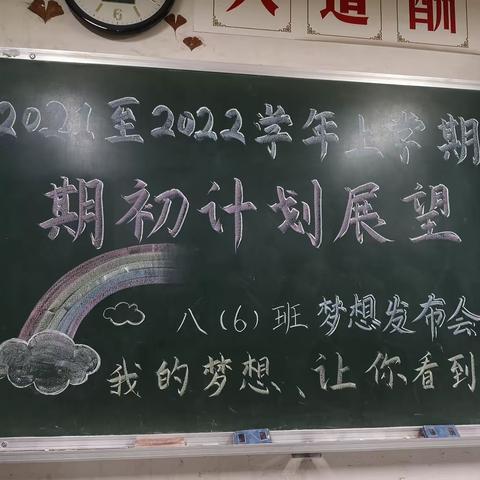 人道酬
2021至2022学年上学期
期初计划展望
八(6)班梦想发布会
我的梦想、让你看到